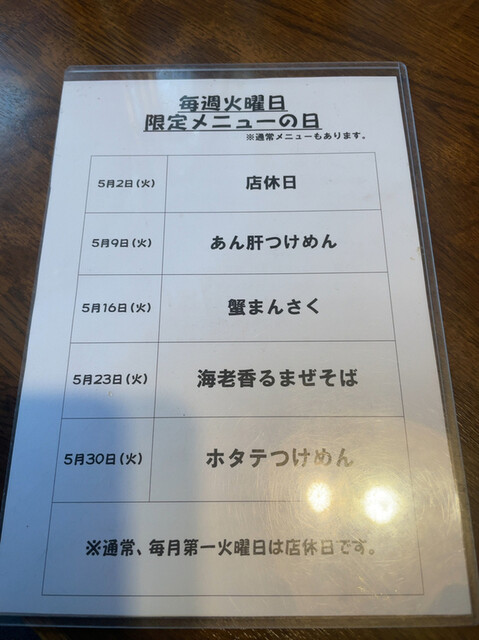 毎週火曜日
限定メニューの日
※通常メニューもあります。
5月2日(火) 店休日
5月9日(火) あん肝つけめん
5月16日(火) 蟹まんさく
5月23日(火) 海老香るまぜそば
5月30日(火) ホタテつけめん
※通常、毎月第一火曜日は店休日です。